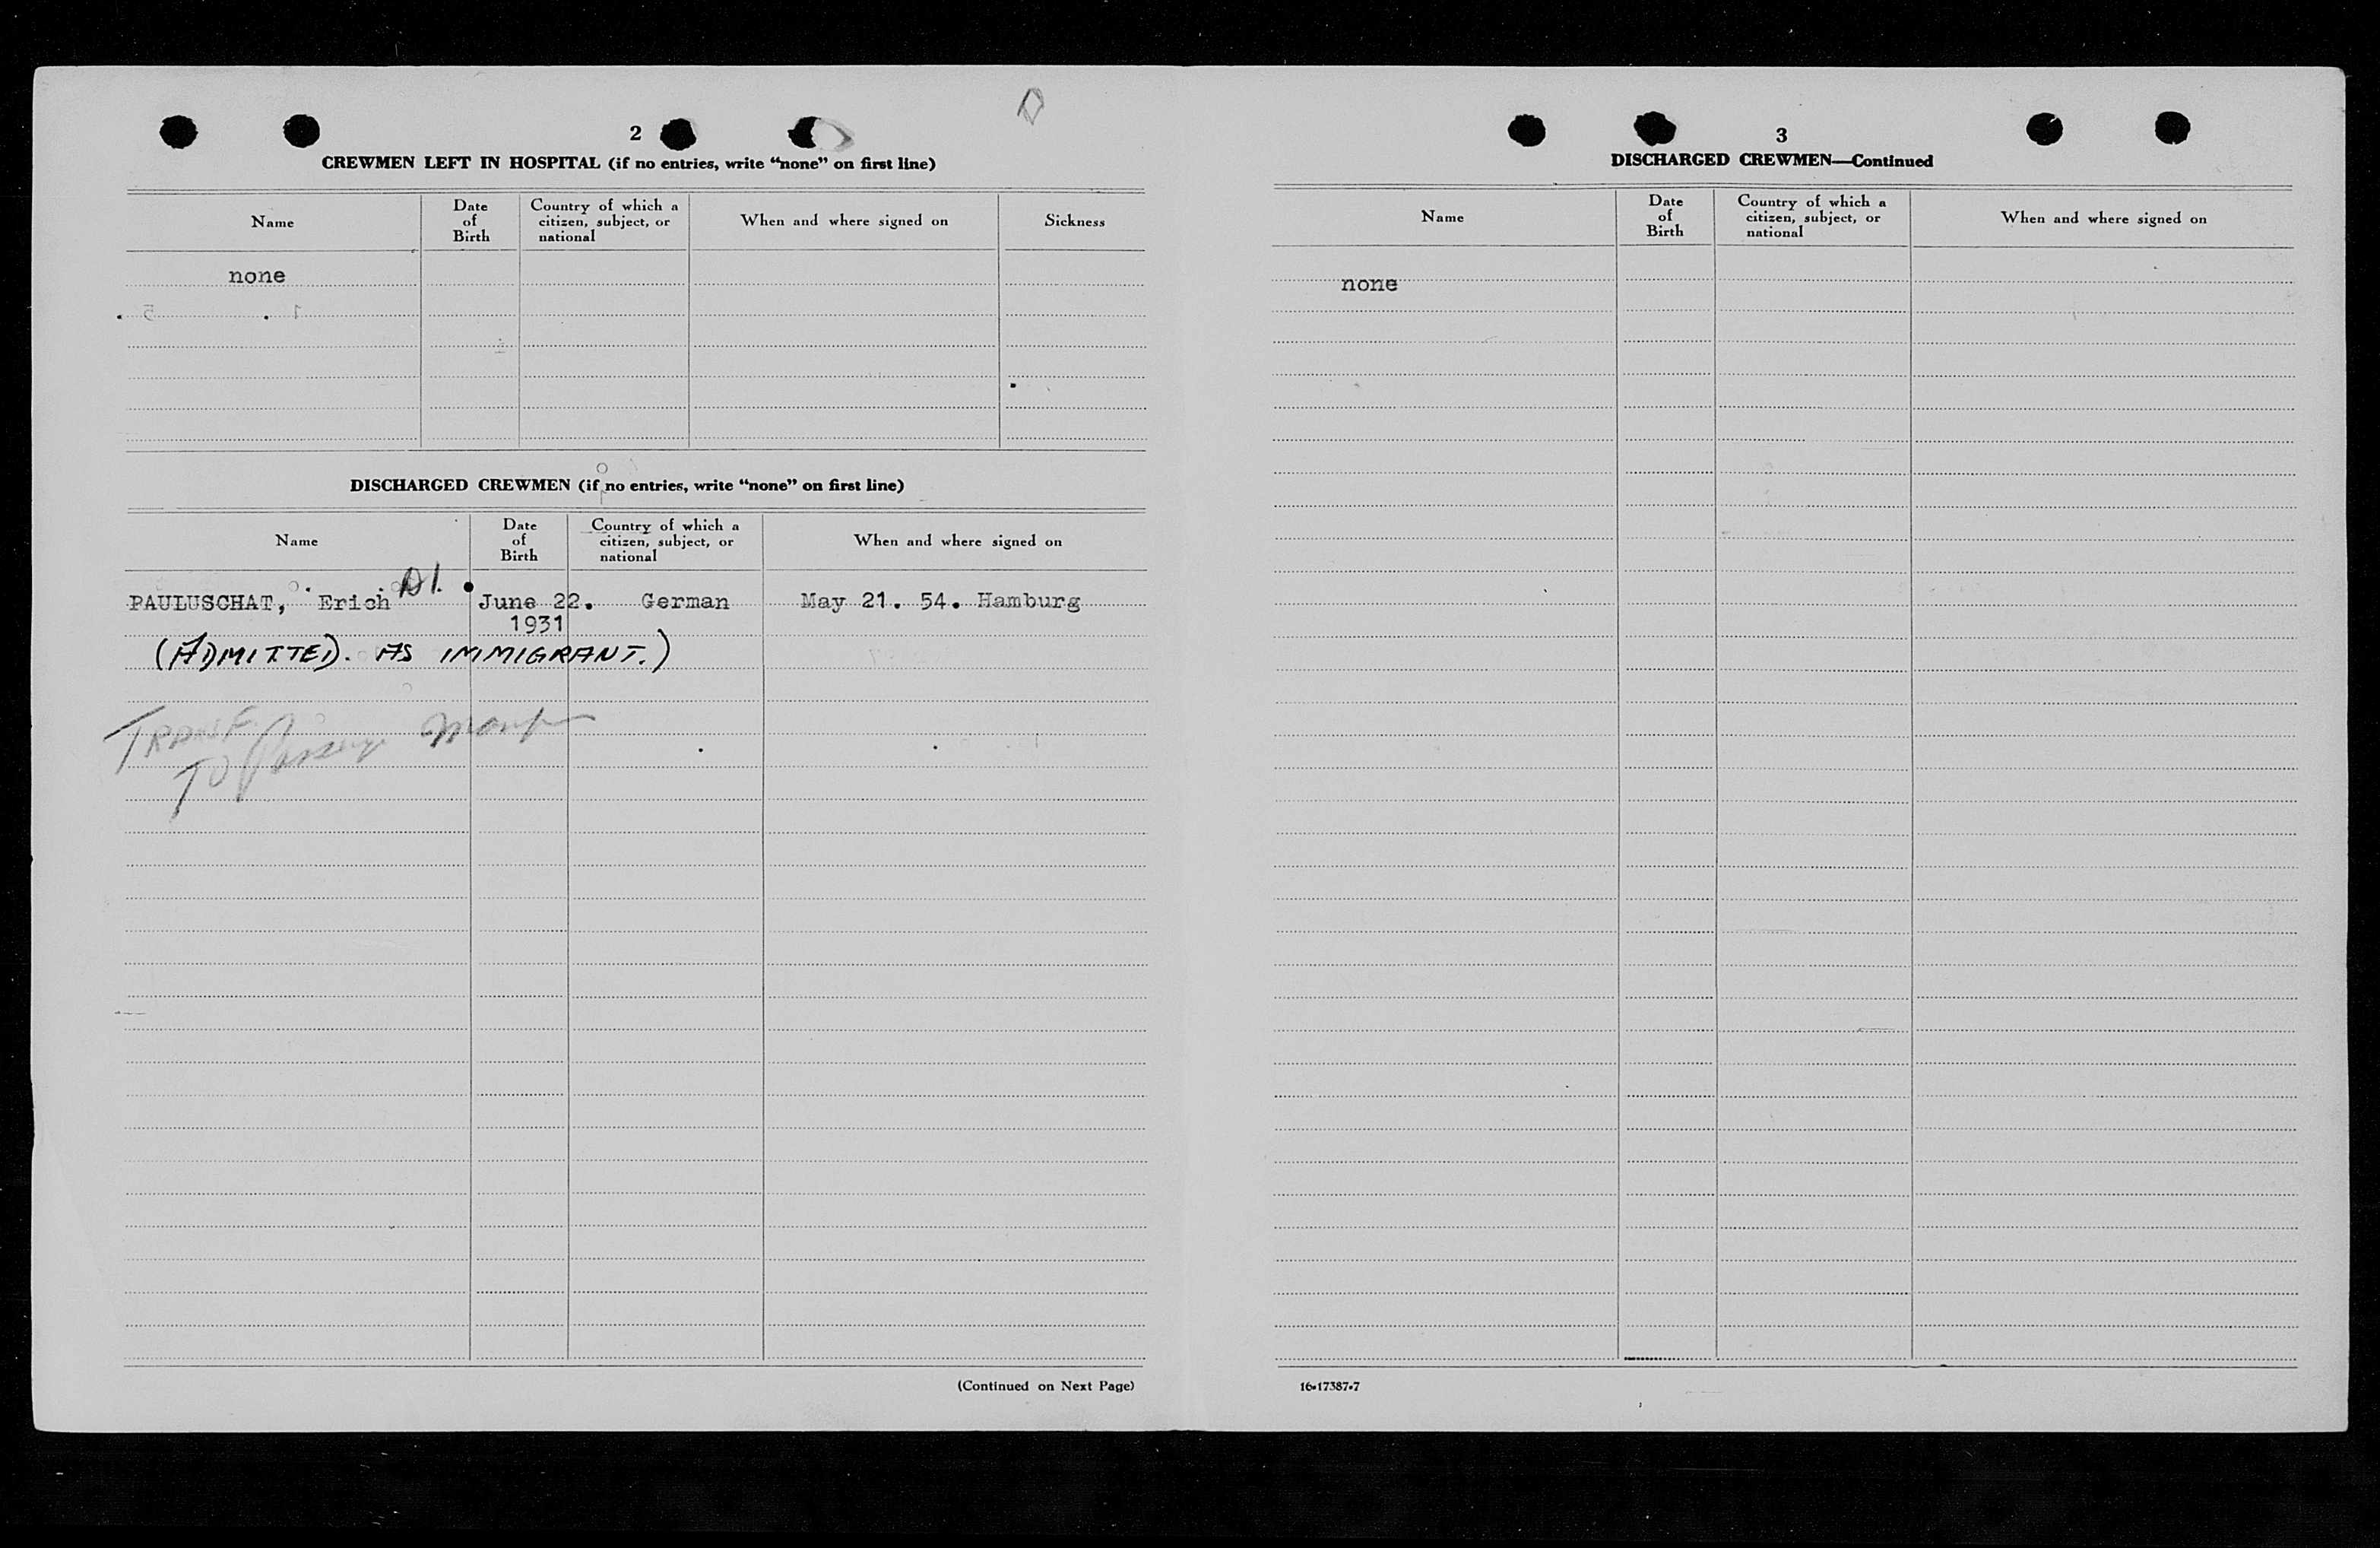 2
CREWMEN LEFT IN HOSPITAL (if no entries, write "none" on first line)
Name
Date of Birth
Country of which a citizen, subject, or national
When and where signed on
Sickness
none
DISCHARGED CREWMEN (if no entries, write "none" on first line)
Name
Date of Birth
Country of which a citizen, subject, or national
When and where signed on
PAULUSCHAT, Erich June 22. German May 21. 54. Hamburg
1931
(ADMITTED. AS IMMIGRANT.)
TRANSF.
TO Passenger
(Continued on Next Page)
3
DISCHARGED CREWMEN—Continued
Name
Date of Birth
Country of which a citizen, subject, or national
When and where signed on
none
16-17387-7